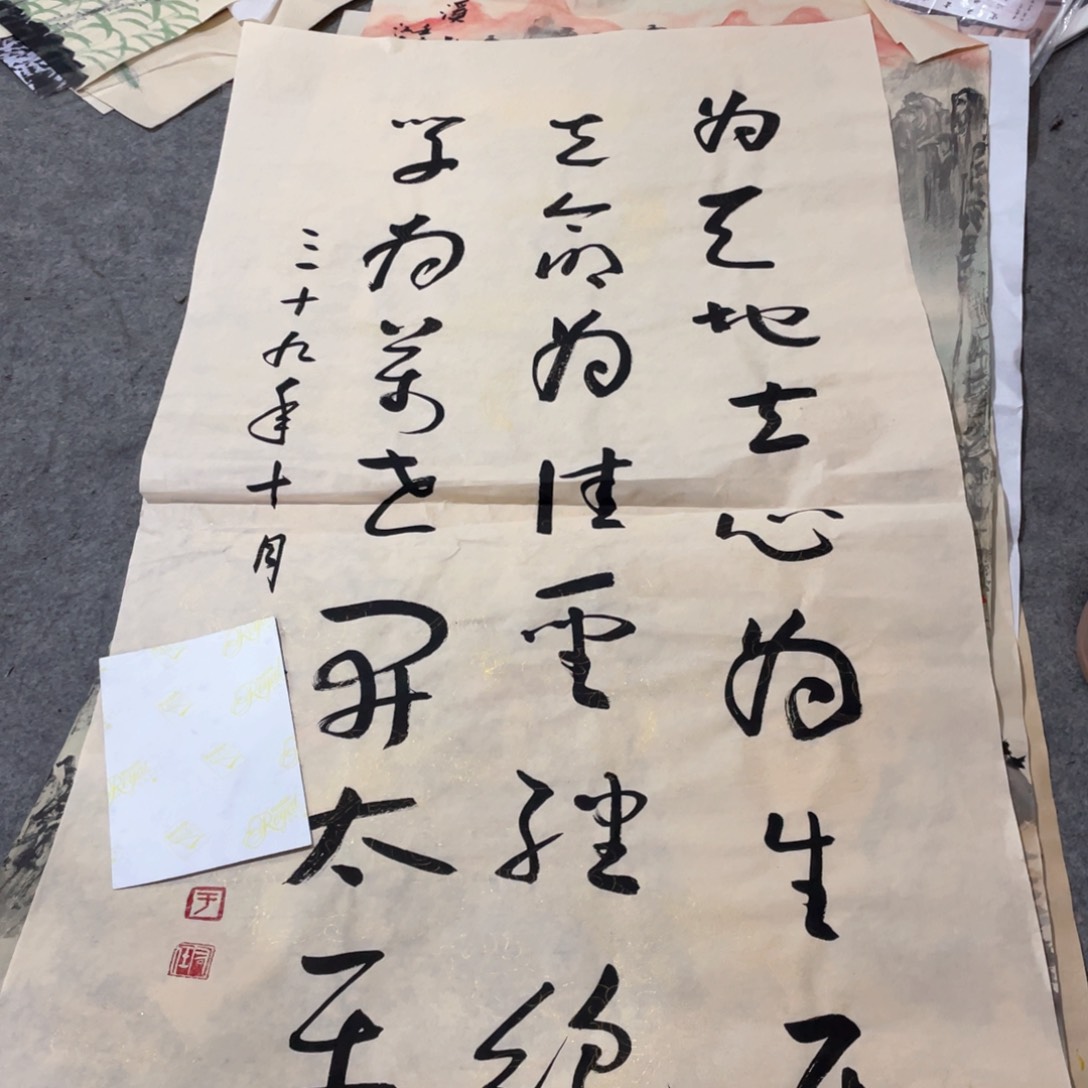 為天地立心為生
立命為往聖繼絕
學為萬世開太平
三十九年十月
于